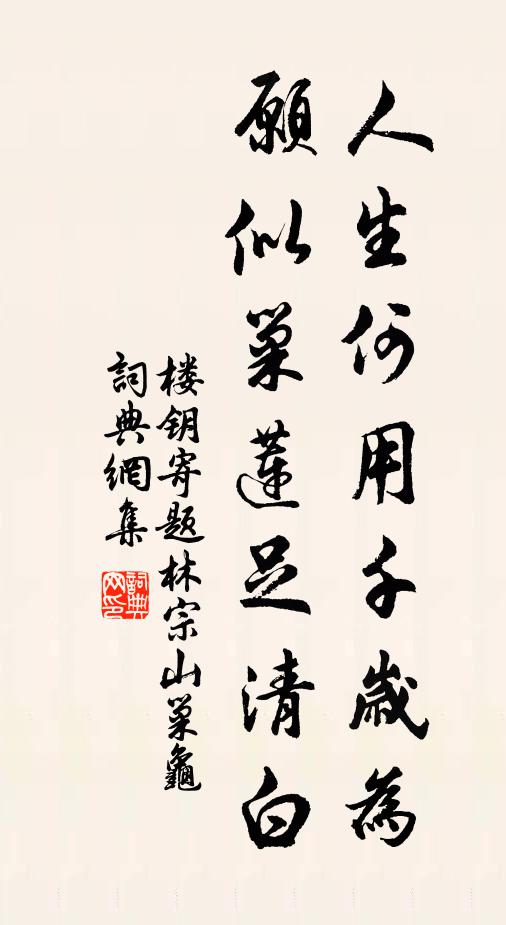 人生何用千歳為
願似巢蓮足清白
楼钥寄题林宗山巢龜
詞典網集
詞典网印